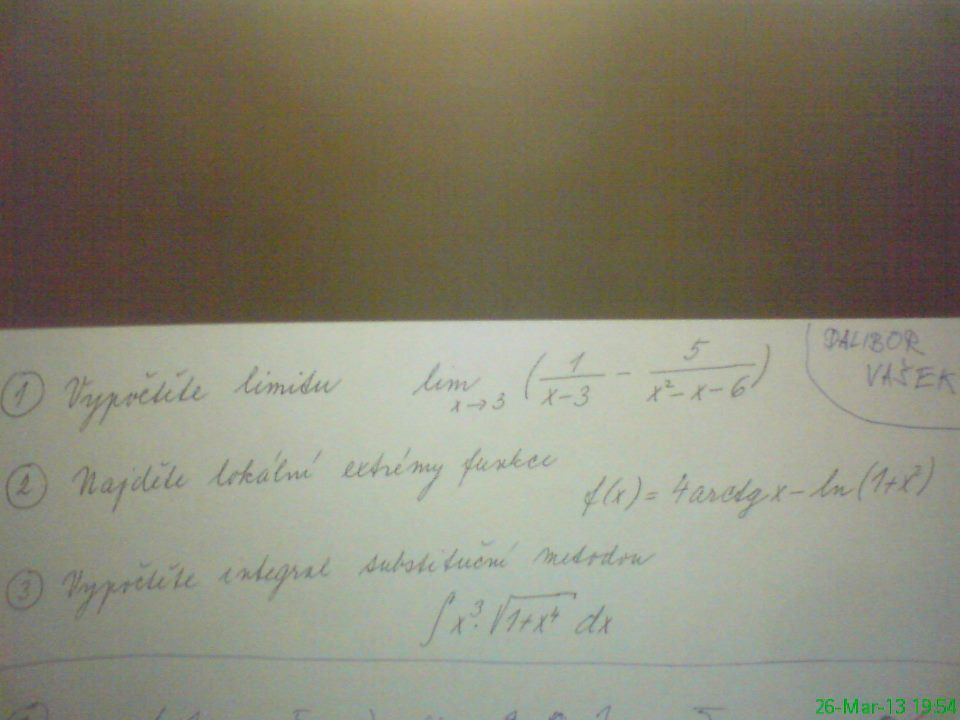 DALIBOR
VAŠEK
① Vypočtěte limitu lim x→3 (1/(x-3) - 5/(x²-x-6))
② Najděte lokální extrémy funkce
f(x) = 4 arctg x - ln(1+x²)
③ Vypočtěte integral substituční metodou
∫ x³·√(1+x⁴) dx
26-Mar-13 19:54